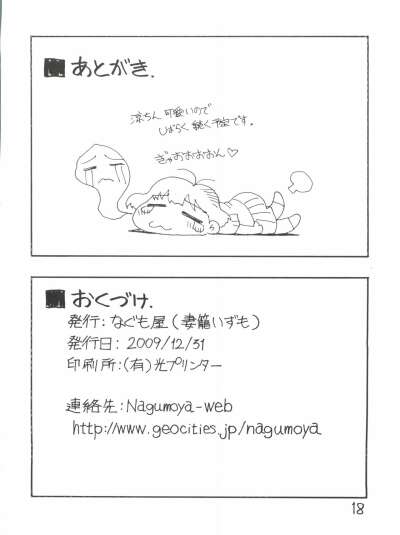 あとがき.
涼ちん 可愛いので
しばらく 続く予定です。
ぎゃおおおおん♡
おくづけ.
発行: なぐも屋(妻籠いずも)
発行日: 2009/12/31
印刷所:(有)光プリンター
連絡先:Nagumoya-web
http://www.geocities.jp/nagumoya
18